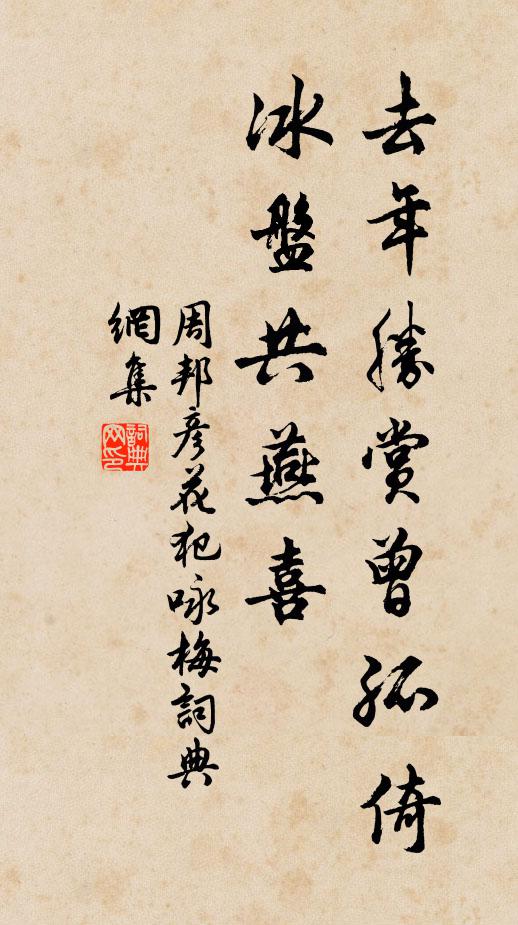 去年勝賞曾孤倚
冰盤共燕喜
周邦彥花犯詠梅詞典
網集
詞典
网印